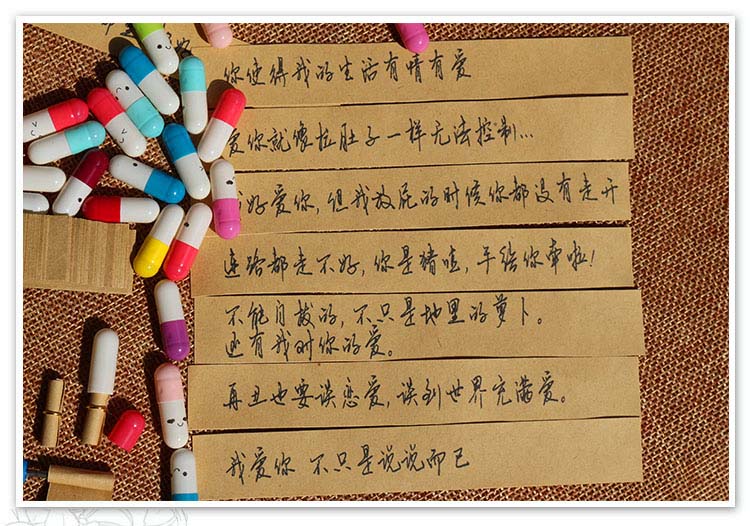 你使得我的生活有情有爱
爱你就像拉肚子一样无法控制...
好爱你,但我放屁的时候你都没有走开
连路都走不好,你是猪哇,手给你牵啦!
不能自拔的,不只是地里的萝卜。
还有我对你的爱。
再丑也要谈恋爱,谈到世界充满爱。
我爱你 不只是说说而已